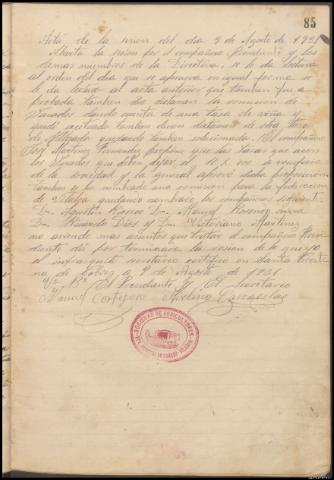 85
Acta de la sesion del dia 9 de Agosto de 1931
Abierta la sesion por el compañero Presidente y los
demas miembros de la Directiva, se le da lectura
al orden del dia que se aprueva en igual forma se
le da lectura al acta anterior que tambien fue a
probada tambien dio dictamen la comision de
dando quenta de una tasa de
quedo acetado tambien dieron dictamen de otra
quedando tambien solucionado. El compañero
José Martinez Fernandez propone que las tasas que acen
los que deben dejar el 10 % a veneficio
de la sociedad y la general aprovó dicha proposicion
tambien se nombrado una comision para la federacion
de quedando nombrados los compañeros siguientes
Dn. Agustin Dn. Manuel
Dn. Ricardo Dios y Dn. Victoriano Martinez
no aviendo mas asuntos que tratar el compañero Presi
dente dio por terminada la sesion de la que yo
el infraescrito secretario certifico en Santa Cristi
na de Cobres a 9 de Agosto de 1931
Vº Bº El Presidente El Secretario
Manuel Avelino
SOCIEDAD DE AGRICULTORES